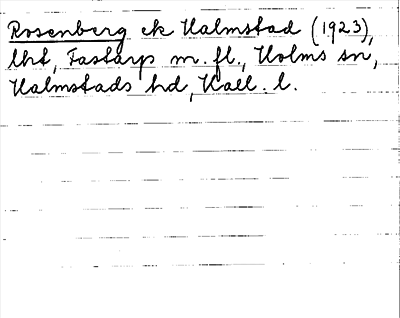 Rosenberg ek Halmstad (1923),
lht, Fastarp m. fl., Holms sn,
Halmstads hd, Hall. l.